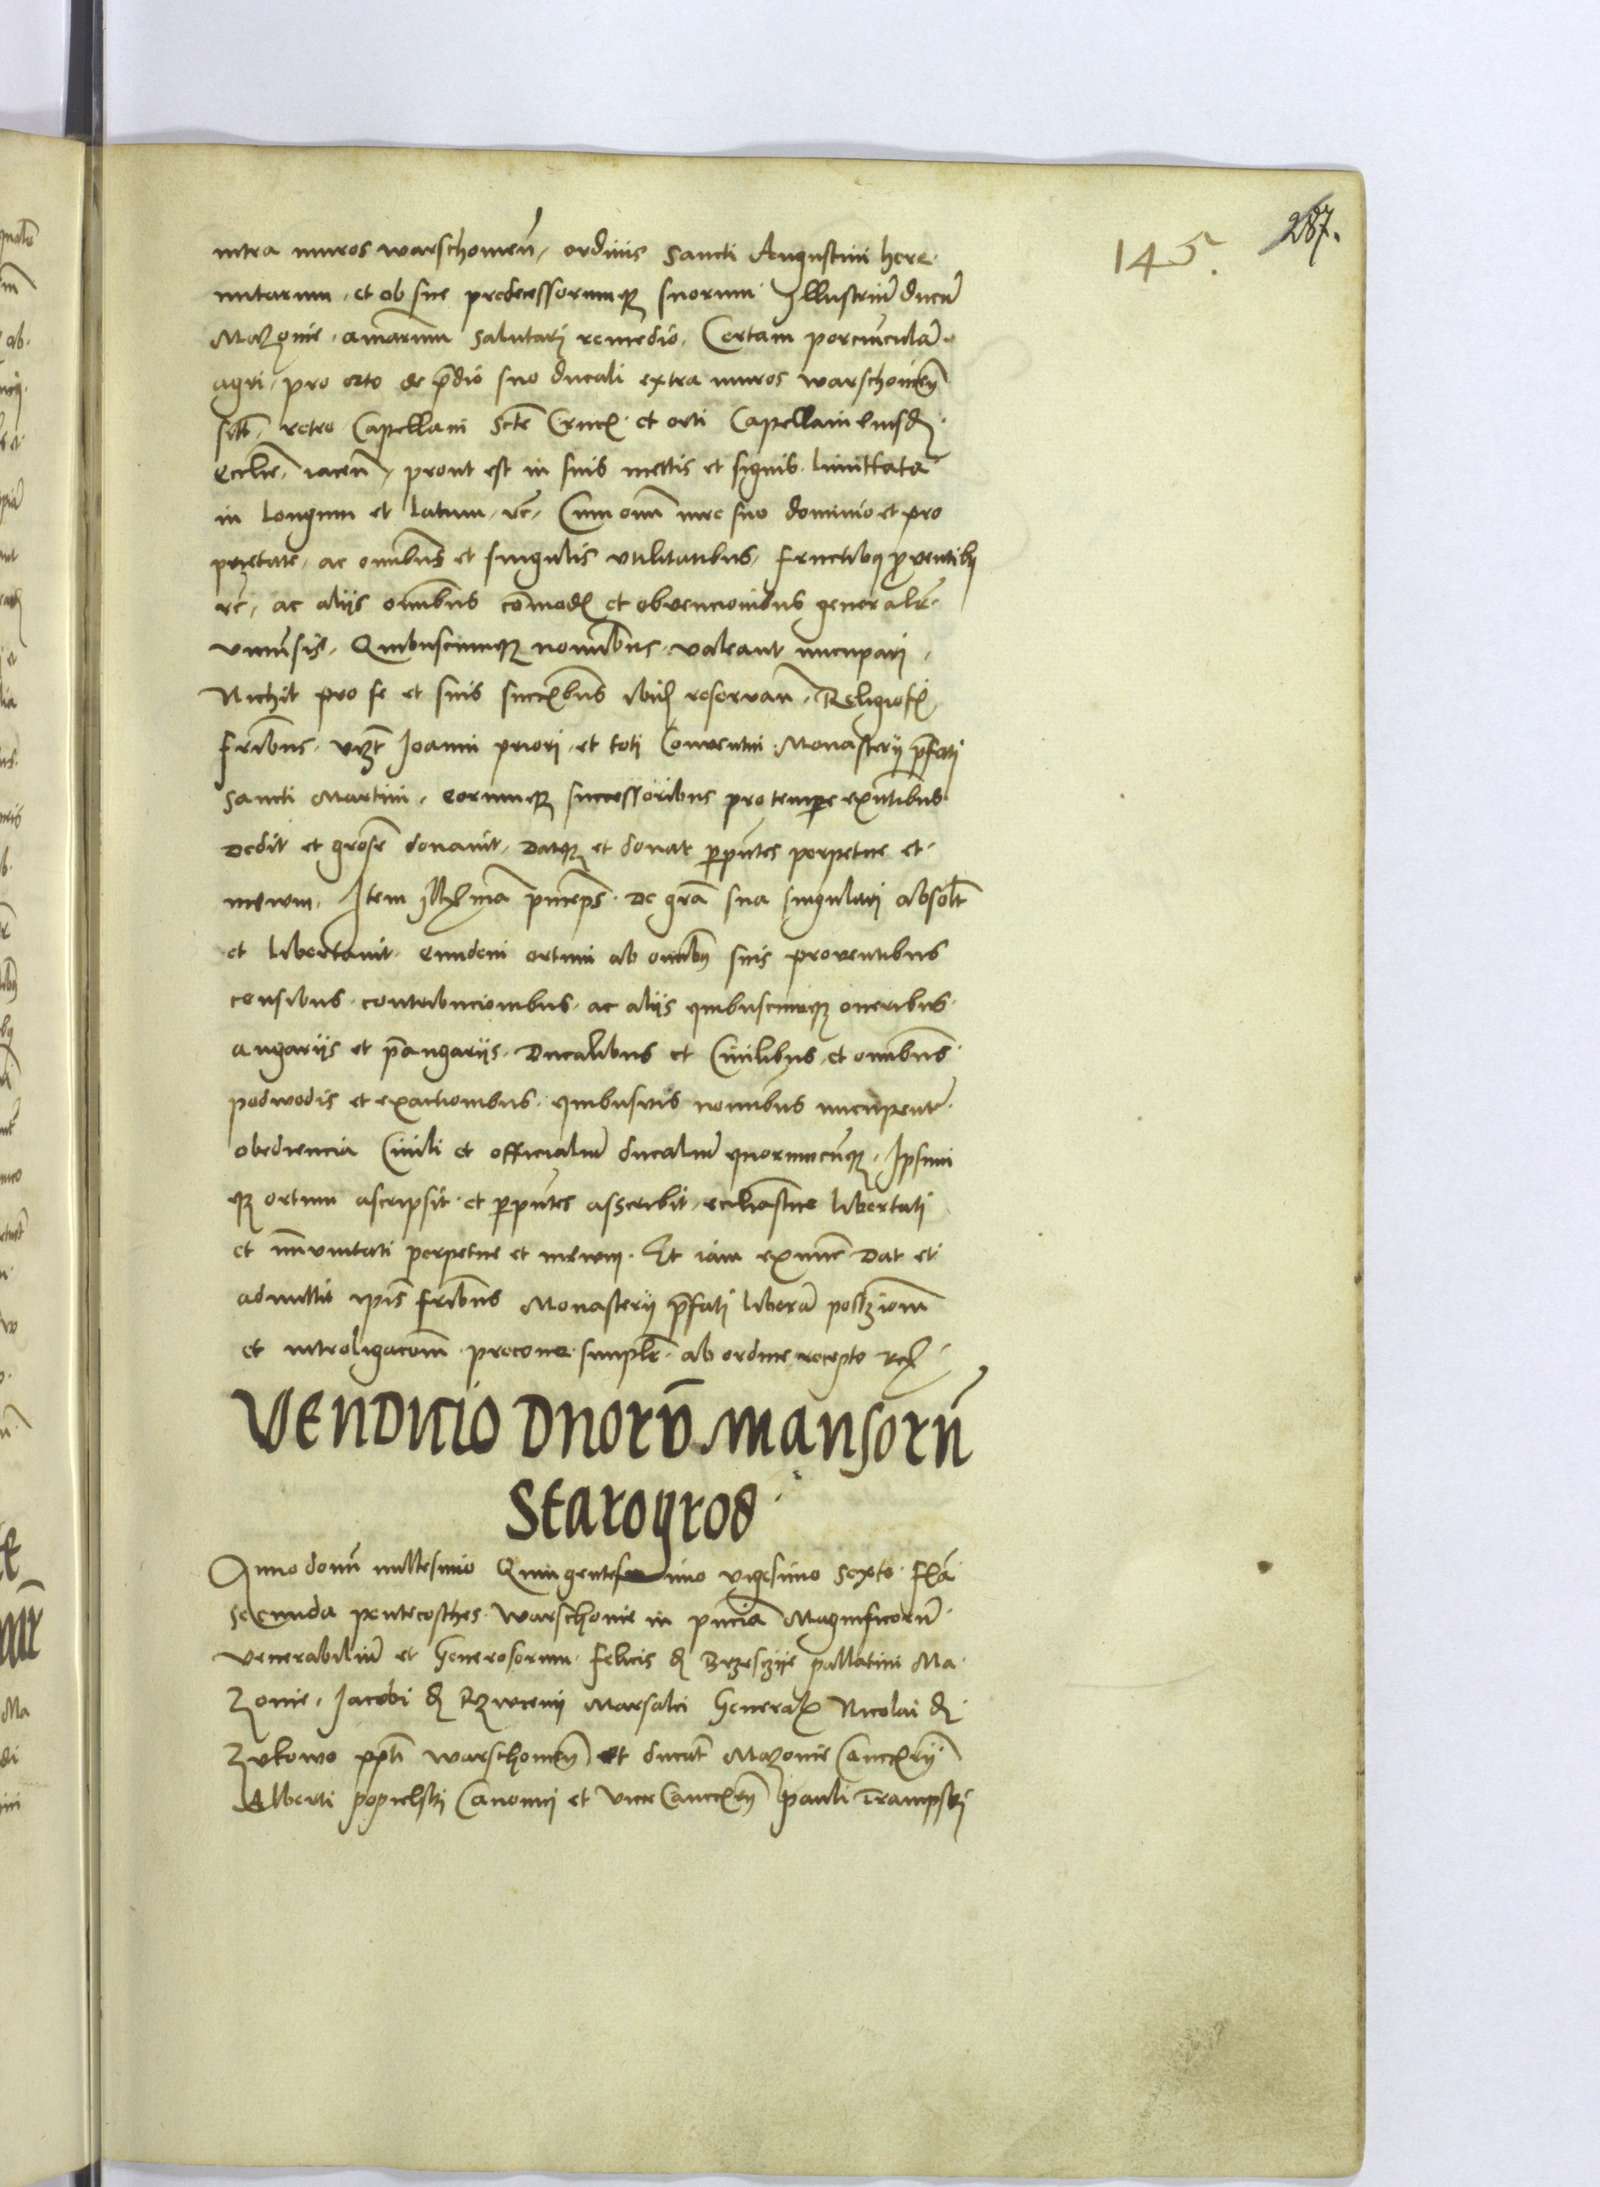 287.
145.
intra muros warschouien̄, ordinis Sancti Augustini here
mitarum, et ob sue predecessorumq3 suorum Illustriū ducū
Mazouie, aīarum salutari remedio, Certam porciunculā
agri, pro orto de p̄dio suo ducali extra muros warschouien̄
retro Capellam Scte Crucis et orti Capellani eiusd̄
Ecclie, iacen̄, prout est in suis mettis et signis limittata
in longum et latum, rc̄, Cum omī iure suo dominio et pro
prietate, ac omībus et singulis vtilitatibus, fructibq3 prouentib3
rc̄, ac alijs omībus cōmodis et obuencionibus generalr̄
vniuersis, Quibuscumq3 nomībus valeant nuncupari,
Nichil pro se et suis succribus ibid̄ reseruan̄, Religiosis
fribus, vz̄t Joanni priori, et toti Conuentui Monasterij p̄fati
Sancti Martini, eorumq3 successoribus pro tempore exn̄tibus
Dedit et grose donauit, datq3 et donat p̄pn̄tes perpetue et
in ewm, Item Illr̄ma princeps de gr̄a sua singulari absoluit
et libertauit eundem ortum ab omīb3 suis prouentibus
censibus, contribucionibus, ac alijs quibuscumq3 oneribus
angarijs et p̄angarijs, Ducalibus et Ciuilibus, et omībus
podwodis et exactionibus, quibusuis nomībus nuncupentr̄
obediencia Ciuili et officialiū ducaliū quorumcūq3, Ipsum
q3 ortum ascripsit et p̄pn̄tes asscribit, ecclīastice libertati
et īmunitati perpetue et in ewm. Et iam ex nunc dat et
admittit ip̄is fribus Monasterij p̄fati liberā possz̄ionem
et introligacōem precone simplr̄ ab ordine recepto
Vendicio Dnorū mansorū
Staroyros
Anno domī millesimo Quingentesimo vigesimo Sexto fr̄ia
Secunda pentecosthes Warschouie in pn̄cia Magnificorū
Venerabiliū et Generosorum felicis d̄ Brzesczije pallatini Ma
zouie, Jacobi d̄ Rzwenij Marsalci Generalis Nicolai d̄
Zukowo pp̄ti warschouien̄ et ducat̄ Mazouie Cancr̄ij
Alberti popielski Canonici et Vice Cancr̄ij pauli Trampski